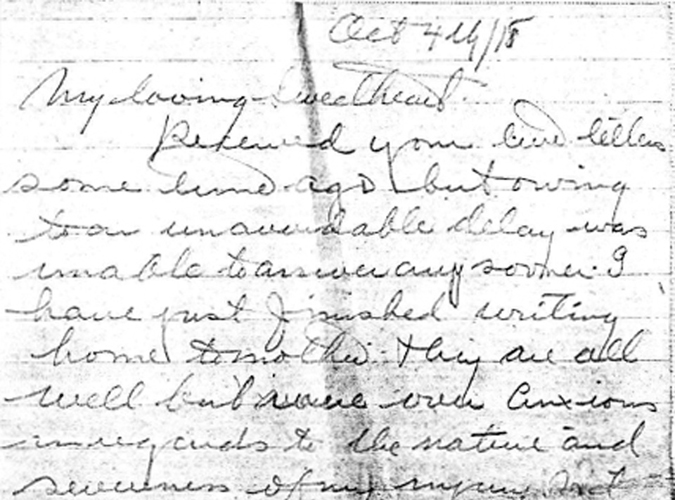 Oct 4th/18
My loving Sweetheart
Received your letters
some time ago but owing
to an unavoidable delay was
unable to answer any sooner. I
have just finished writing
home to mother. They are all
well but over anxious
in regards to the nature and
of my